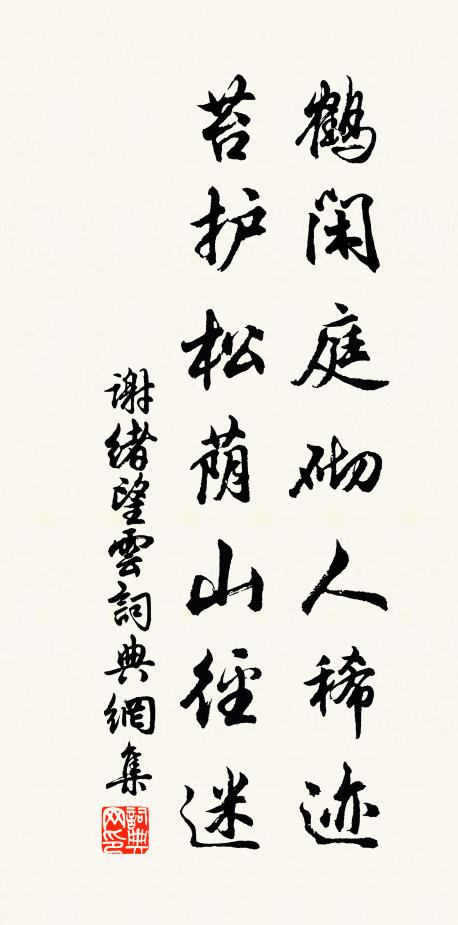 鹤闲庭砌人稀迹
苔护松荫山径迷
谢绪望雲詞典網集
詞典网印